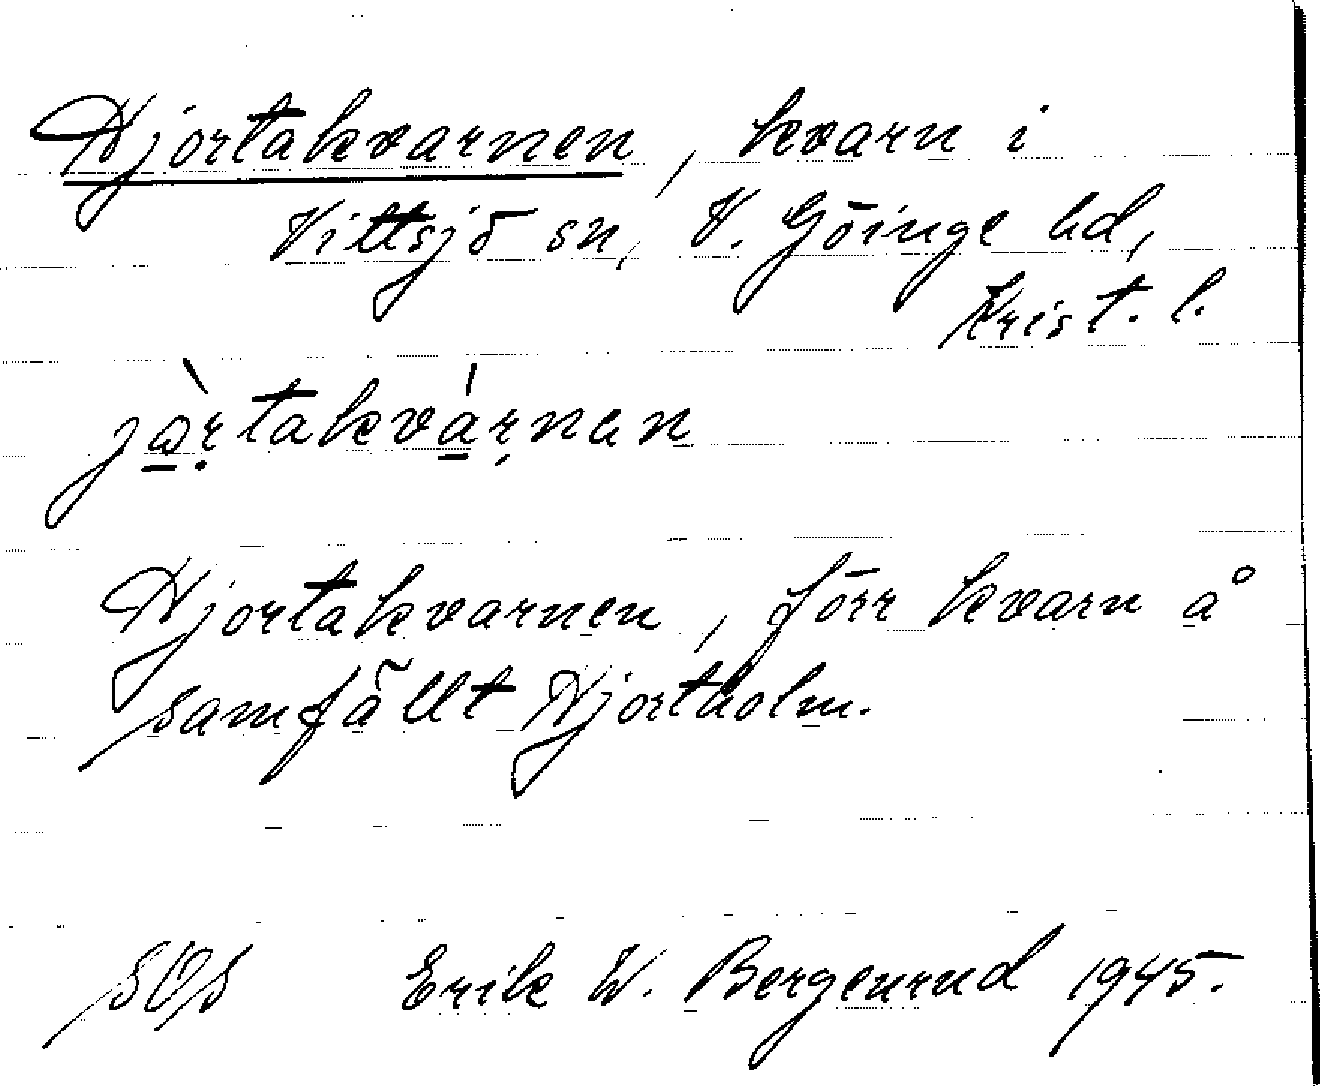 Hjortakvarnen, kvarn i
Vittsjö sn, V. Göinge hd,
Krist. l.
jàrtakvárnan
Hjortakvarnen, förr kvarn å
samfällt Hjortholm.
SOS Erik W. Bergenrud 1945.